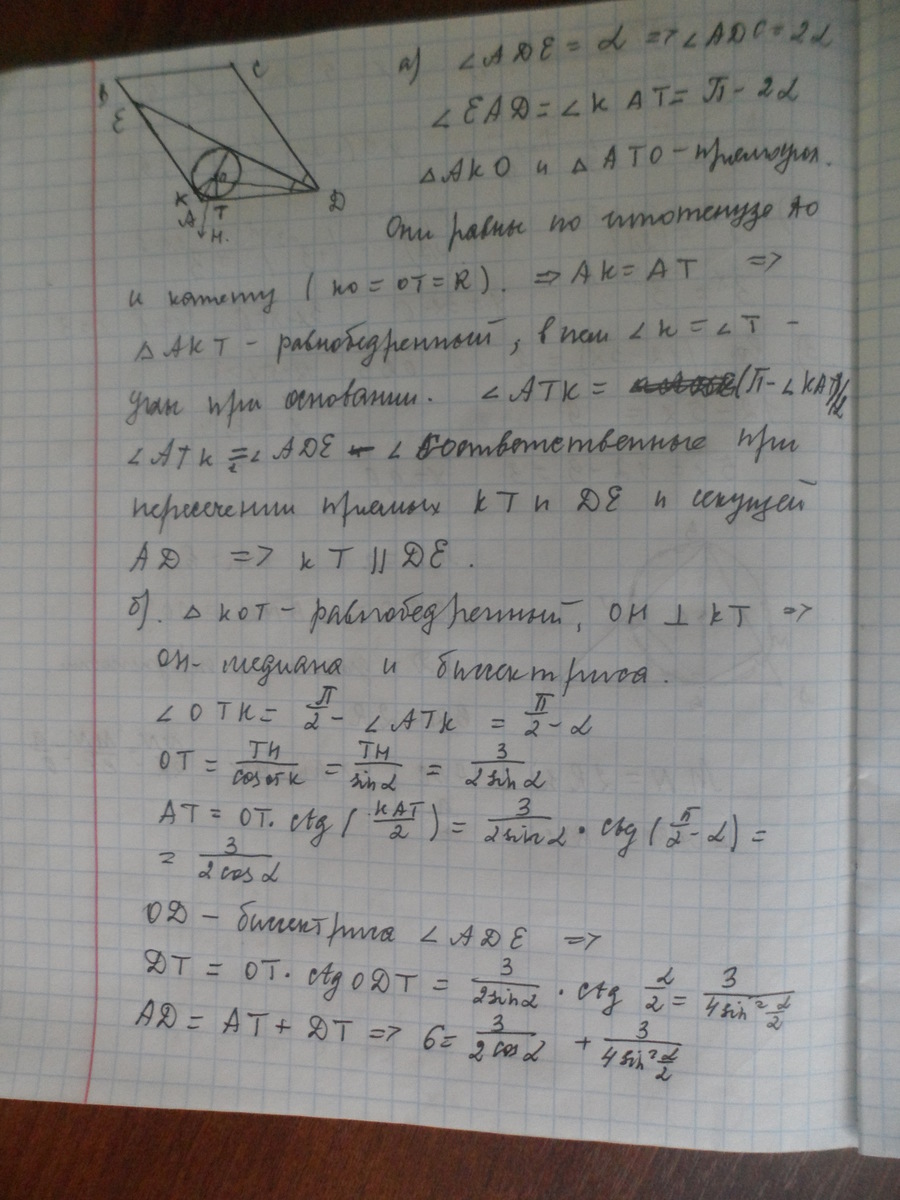 B
C
E
K
A
T
H.
O
D
а) ∠ADE = α => ∠ADC = 2α
∠EAD = ∠KAT = π - 2α
△AKO и △ATO - прямоугол.
Они равны по гипотенузе AO
и катету (KO = OT = R). => AK = AT =>
△AKT - равнобедренный, в нем ∠K = ∠T -
углы при основании. ∠ATK = (π - ∠KAT)/2
∠ATK = ∠ADE - ∠ соответственные при
пересечении прямых KT и DE и секущей
AD => KT || DE.
б). △KOT - равнобедренный, OH ⊥ KT =>
OH - медиана и биссектриса.
∠OTK = π/2 - ∠ATK = π/2 - α
OT = TH/cosOTK = TH/sinα = 3/2sinα
AT = OT · ctg(KAT/2) = 3/2sinα · ctg(π/2 - α) =
= 3/2cosα
OD - биссектриса ∠ADE =>
DT = OT · ctg ODT = 3/2sinα · ctg α/2 = 3/4sin²α/2
AD = AT + DT => 6 = 3/2cosα + 3/4sin²α/2